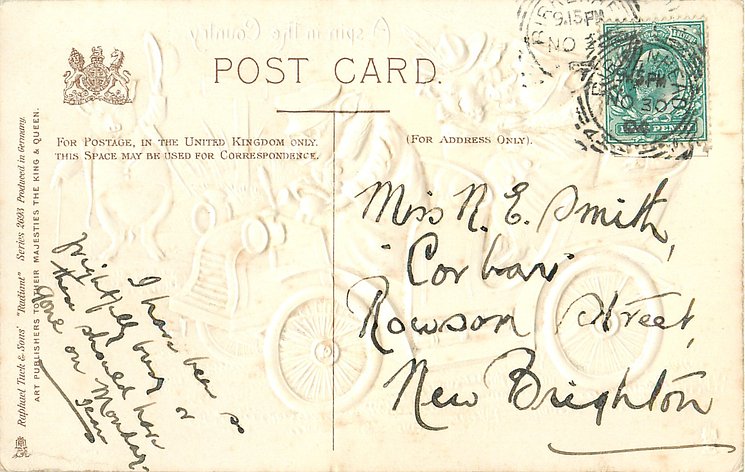 A spin in the Country
POST CARD.
FOR POSTAGE, IN THE UNITED KINGDOM ONLY,
THIS SPACE MAY BE USED FOR CORRESPONDENCE.
(FOR ADDRESS ONLY).
Raphael Tuck & Sons' "Radiant" Series 2693 Produced in Germany.
ART PUBLISHERS TO THEIR MAJESTIES THE KING & QUEEN.
I have been so
frightfully busy or
these should have
gone on Monday.
Miss N. E. Smith,
Corbar
Rowson Street,
New Brighton
9.15 PM
NO
NO 30
04